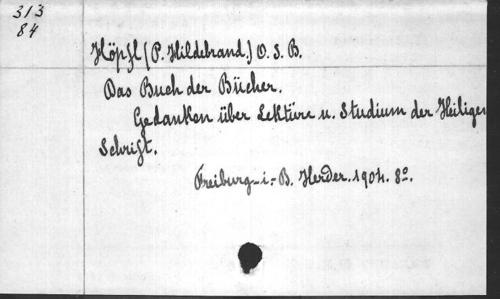 313
84
Höpfl (P. Hildebrand.) O. S. B.
Das Buch der Bücher.
Gedanken über Lektüre u. Studium der Heiligen
Schrift.
Freiburg-i.-B. Herder. 1904. 8º.